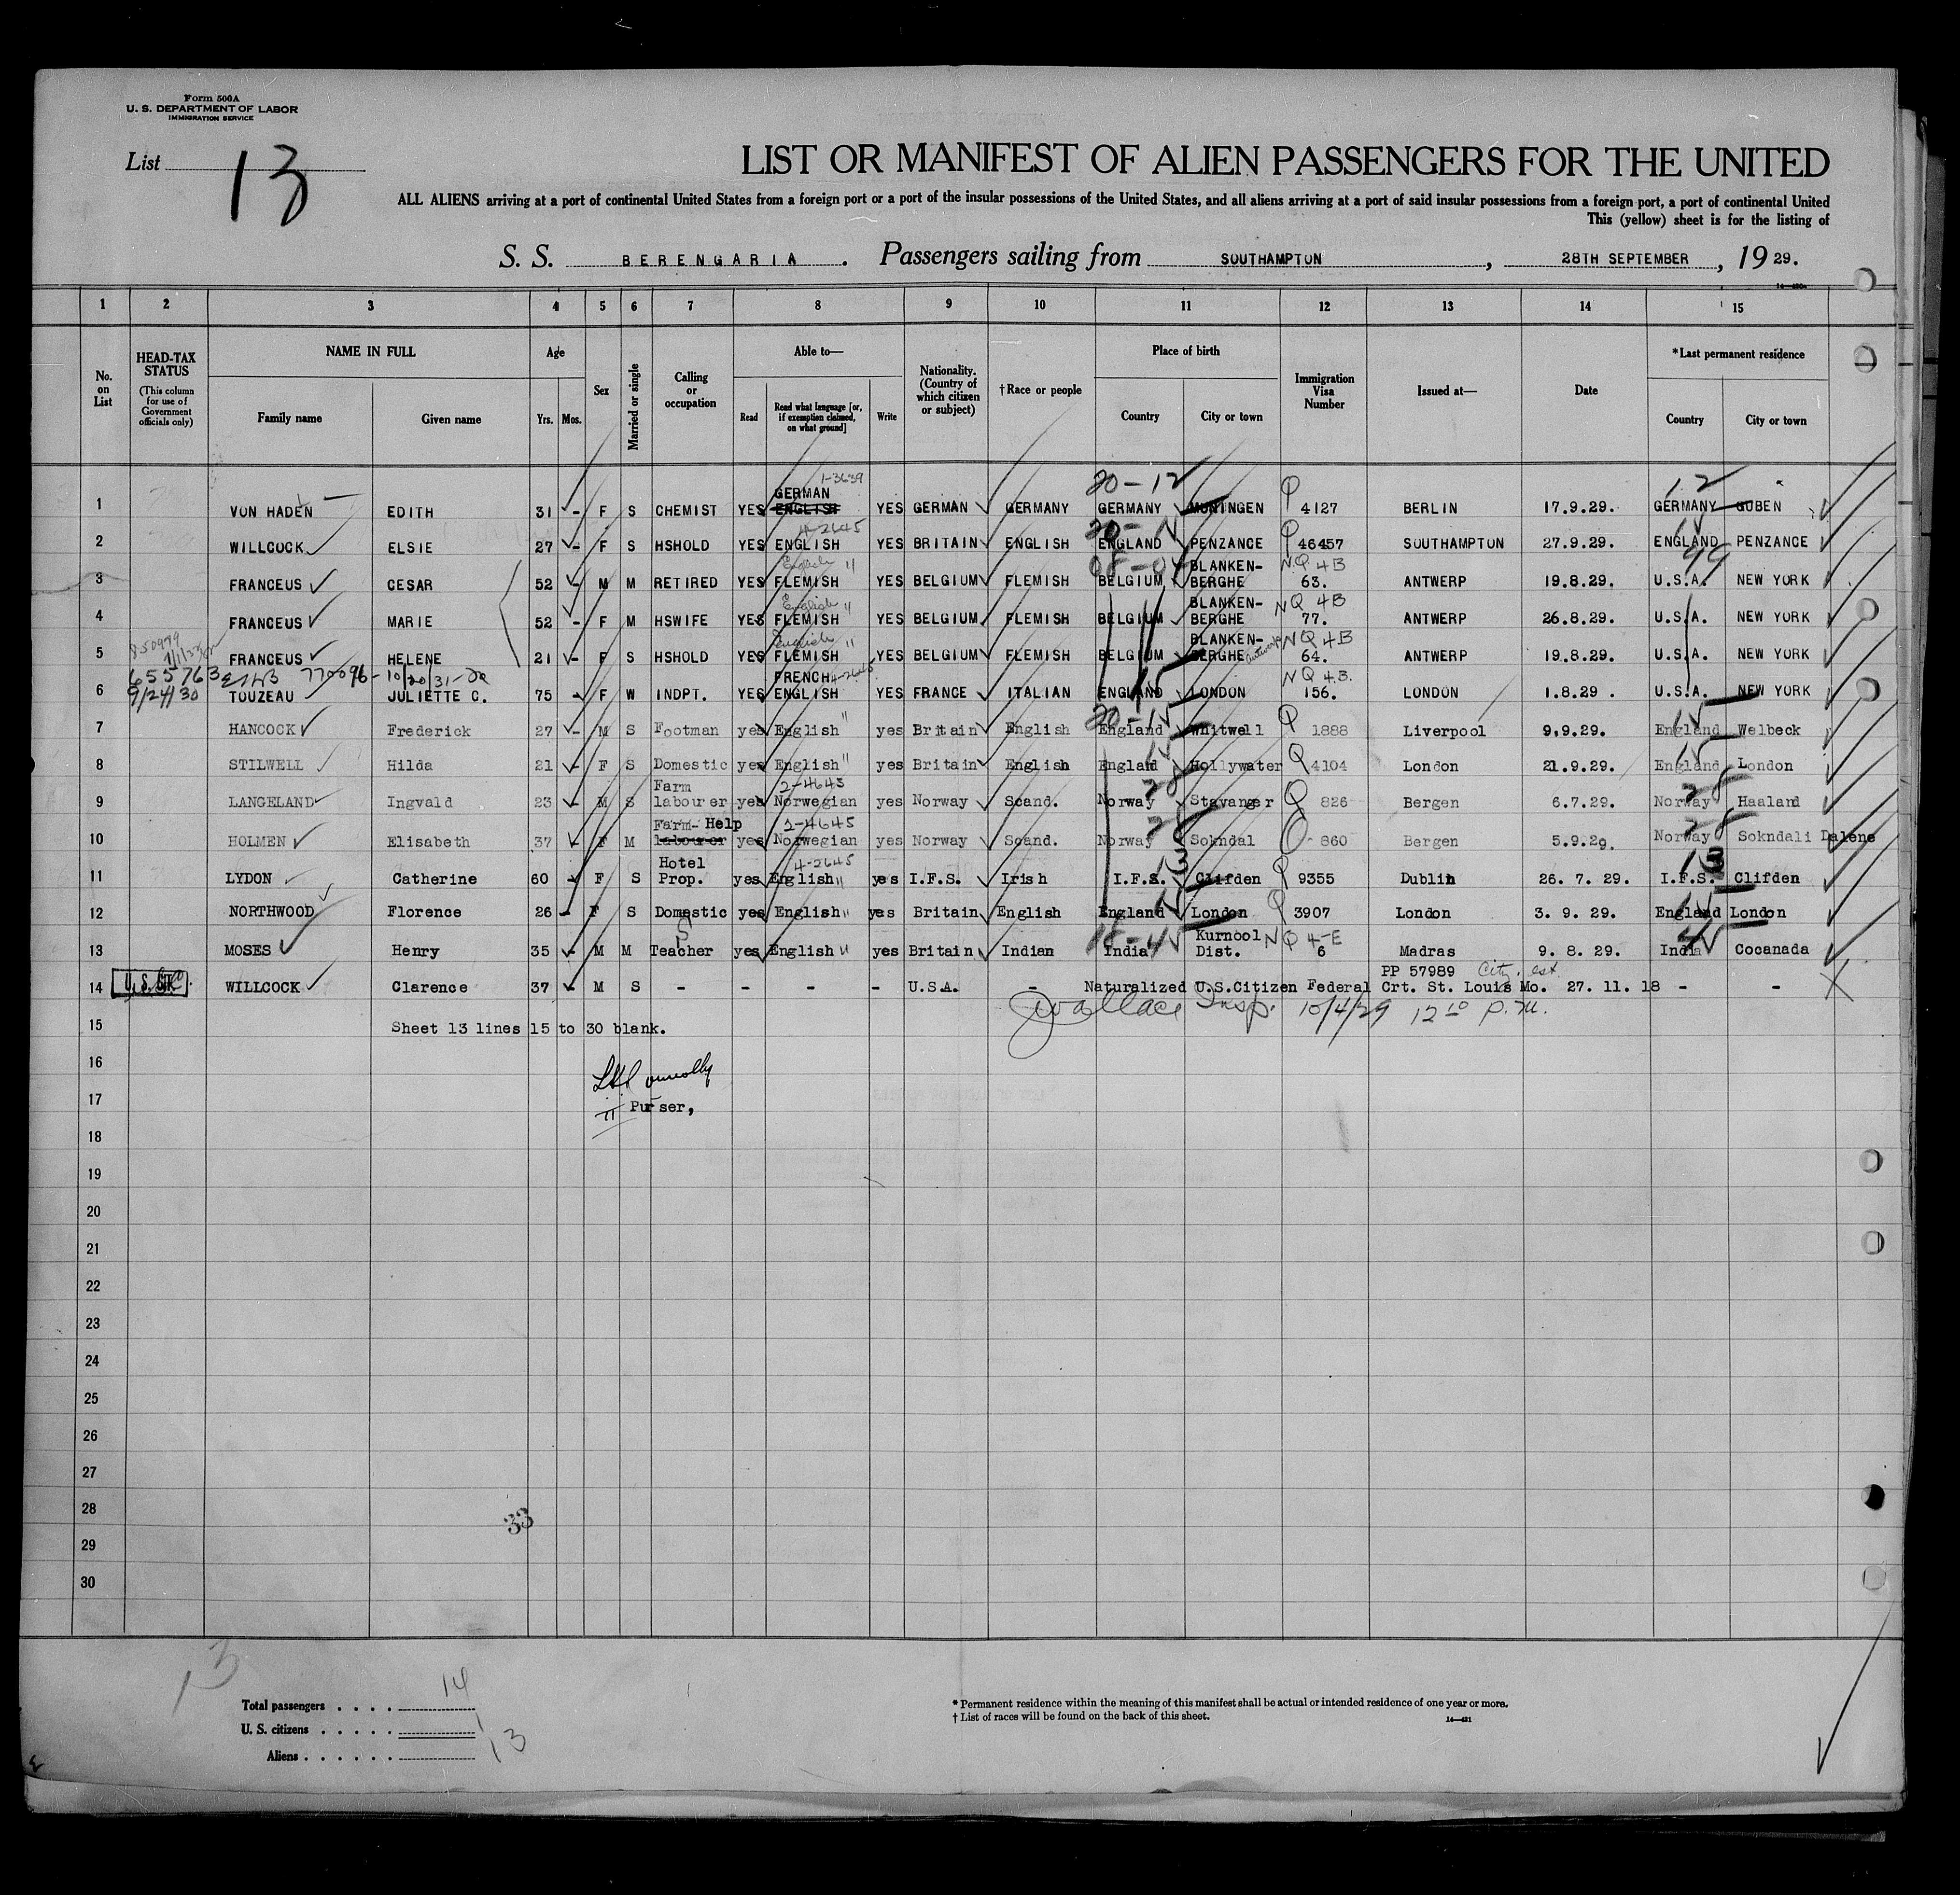 Form 500A
U. S. DEPARTMENT OF LABOR
IMMIGRATION SERVICE
List 13
LIST OR MANIFEST OF ALIEN PASSENGERS FOR THE UNITED
ALL ALIENS arriving at a port of continental United States from a foreign port or a port of the insular possessions of the United States, and all aliens arriving at a port of said insular possessions from a foreign port, a port of continental United
This (yellow) sheet is for the listing of
S. S. BERENGARIA. Passengers sailing from SOUTHAMPTON, 28TH SEPTEMBER, 19 29.
1 2 3 4 5 6 7 8 9 10 11 12 13 14 15
No. on List
HEAD-TAX STATUS (This column for use of Government officials only)
NAME IN FULL
Family name Given name
Age
Yrs. Mos.
Sex
Married or single
Calling or occupation
Able to—
Read Read what language [or, if exemption claimed, on what ground] Write
Nationality. (Country of which citizen or subject)
†Race or people
Place of birth
Country City or town
Immigration Visa Number
Issued at—
Date
*Last permanent residence
Country City or town
1-3639
20-12 12
1 VON HADEN EDITH 31 - F S CHEMIST YES GERMAN ENGLISH YES GERMAN GERMANY GERMANY Q 4127 BERLIN 17.9.29. GERMANY GUBEN
4-2645
2 WILLCOCK ELSIE 27 - F S HSHOLD YES ENGLISH YES BRITAIN ENGLISH ENGLAND PENZANCE Q 46457 SOUTHAMPTON 27.9.29. ENGLAND PENZANCE
English " NQ 4B 99
3 FRANCEUS CESAR 52 - M M RETIRED YES FLEMISH YES BELGIUM FLEMISH BELGIUM BLANKEN-BERGHE 63. ANTWERP 19.8.29. U.S.A. NEW YORK
English " NQ 4B
4 FRANCEUS MARIE 52 - F M HSWIFE YES FLEMISH YES BELGIUM FLEMISH BELGIUM BLANKEN-BERGHE 77. ANTWERP 26.8.29. U.S.A. NEW YORK
English " NQ 4B
5 FRANCEUS HELENE 21 - F S HSHOLD YES FLEMISH YES BELGIUM FLEMISH BELGIUM BLANKEN-BERGHE Antwerp 64. ANTWERP 19.8.29. U.S.A. NEW YORK
655763 770096-10/20/31
9/24/30
4-2645 NQ 4B.
6 TOUZEAU JULIETTE C. 75 - F W INDPT. YES FRENCH ENGLISH YES FRANCE ITALIAN ENGLAND LONDON 156. LONDON 1.8.29. U.S.A. NEW YORK
7 HANCOCK Frederick 27 - M S Footman yes English " yes Britain English England Whitwell Q 1888 Liverpool 9.9.29. England Welbeck
8 STILWELL Hilda 21 - F S Domestic yes English " yes Britain English England Hollywater Q 4104 London 21.9.29. England London
2-4645 28 28
9 LANGELAND Ingvald 23 - M S Farm labourer yes Norwegian yes Norway Scand. Norway Stavanger Q 826 Bergen 6.7.29. Norway Haaland
2-4645 28 28
10 HOLMEN Elisabeth 37 - F M Farm- Help labourer yes Norwegian yes Norway Scand. Norway Sokndal Q 860 Bergen 5.9.29. Norway Sokndali Dalene
4-2645 13 13
11 LYDON Catherine 60 - F S Hotel Prop. yes English " yes I.F.S. Irish I.F.S. Clifden Q 9355 Dublin 26. 7. 29. I.F.S. Clifden
12 NORTHWOOD Florence 26 - F S Domestic yes English " yes Britain English England London Q 3907 London 3. 9. 29. England London
13 MOSES Henry 35 - M M Teacher yes English " yes Britain Indian India Kurnool Dist. NQ 4-E 6 Madras 9. 8. 29. India Cocanada
PP 57989 City. est.
14 WILLCOCK Clarence 37 - M S - - - - U.S.A. - Naturalized U.S.Citizen Federal Crt. St. Louis Mo. 27. 11. 18 - -
JWallace Insp. 10/4/29 12 10 P.M.
15 Sheet 13 lines 15 to 30 blank.
16
17 Purser,
18
19
20
21
22
23
24
25
26
27
28
33
29
30
13
Total passengers . . . . 14
U. S. citizens . . . . . 1
Aliens . . . . . . 13
* Permanent residence within the meaning of this manifest shall be actual or intended residence of one year or more.
† List of races will be found on the back of this sheet.
14—421